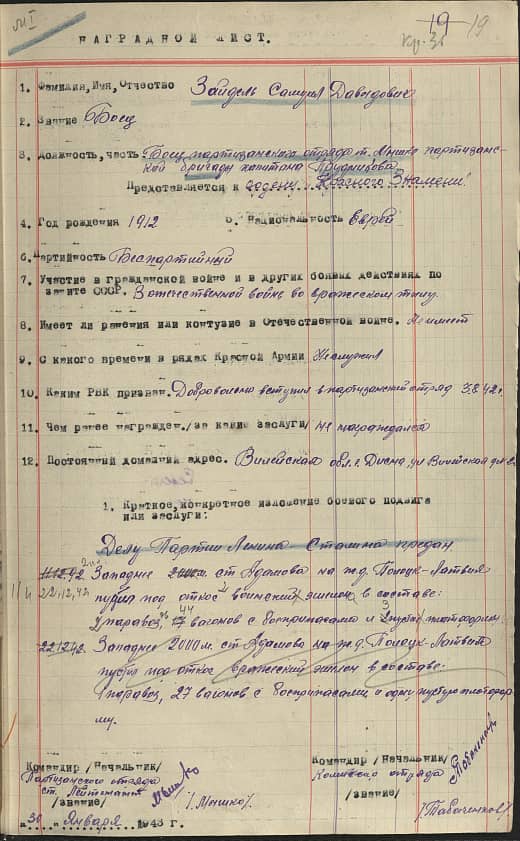 19 19
НАГРАДНОЙ ЛИСТ.
1. Фамилия, Имя, Отчество Зайдель Самуил Давыдович
2. Звание Боец
3. Должность, часть. Боец партизанского отряда т. Мышко партизан-
ской бригады капитана
Представляется к ордену Красного Знамени
4. Год рождения 1912 5. Национальность Еврей
6. Партийность Беспартийный
7. Участие в гражданской войне и в других боевых действиях по
защите СССР. В отечественной войне во вражеском тылу.
8. Имеет ли ранения или контузие в Отечественной войне. Не имеет
9. С какого времени в рядах Красной Армии Не служил
10. Каким РВК призван. Добровольно вступил в партизанский отряд 3.8.42г.
11. Чем ранее награжден /за какие заслуги/ не награждался
12. Постоянный домашний адрес. Вилейская обл. г. Дисна, ул
1. Краткое, конкретное изложение боевого подвига
или заслуги:
Делу Партии Ленина-Сталина предан.
Западнее м. ст. Адамова на ж.д. Полоцк-Латвия
22.12.42 пустил под откос эшелон в составе:
1 паровоз, 44 вагонов с боеприпасами и 3 платформы
22.12.42. Западнее 2000 м. ст. Адамово на ж.д. Полоцк-Латвия
пустил под откос вражеский эшелон в составе:
1 паровоз, 27 вагонов с боеприпасами и одну пустую платфор-
му.
Командир /Начальник/ Командир /Начальник/
Партизанского отряда Комиссар отряда
ст. Лейтенант
/звание/ /Мышко/. /звание/ /Табаченков/
"30" Января 1943 г.